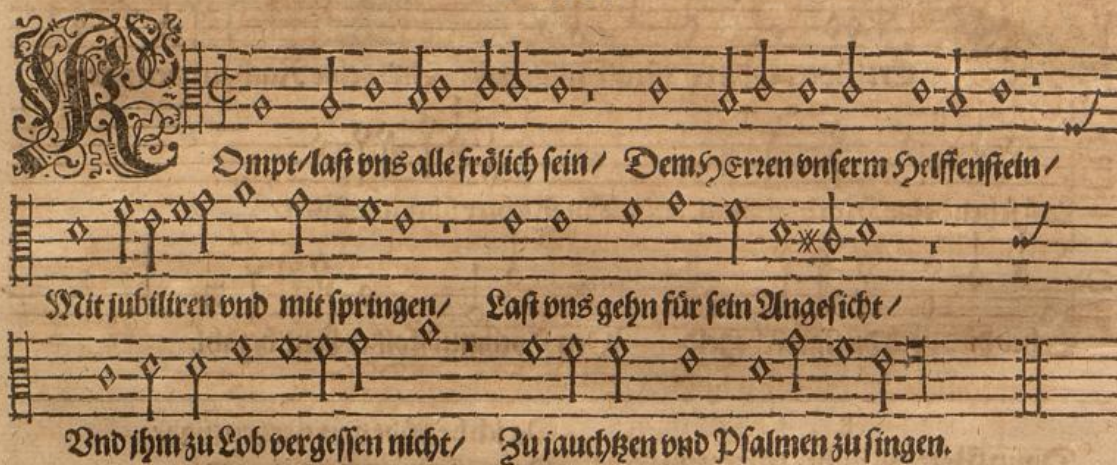 KOmpt/laſt vns alle frölich ſein/ Dem HErren vnſerm Helffenſtein/
Mit jubiliren vnd mit ſpringen/ Laſt vns gehn für ſein Angeſicht/
Vnd jhm zu Lob vergeſſen nicht/ Zu jauchtzen vnd Pſalmen zu ſingen.